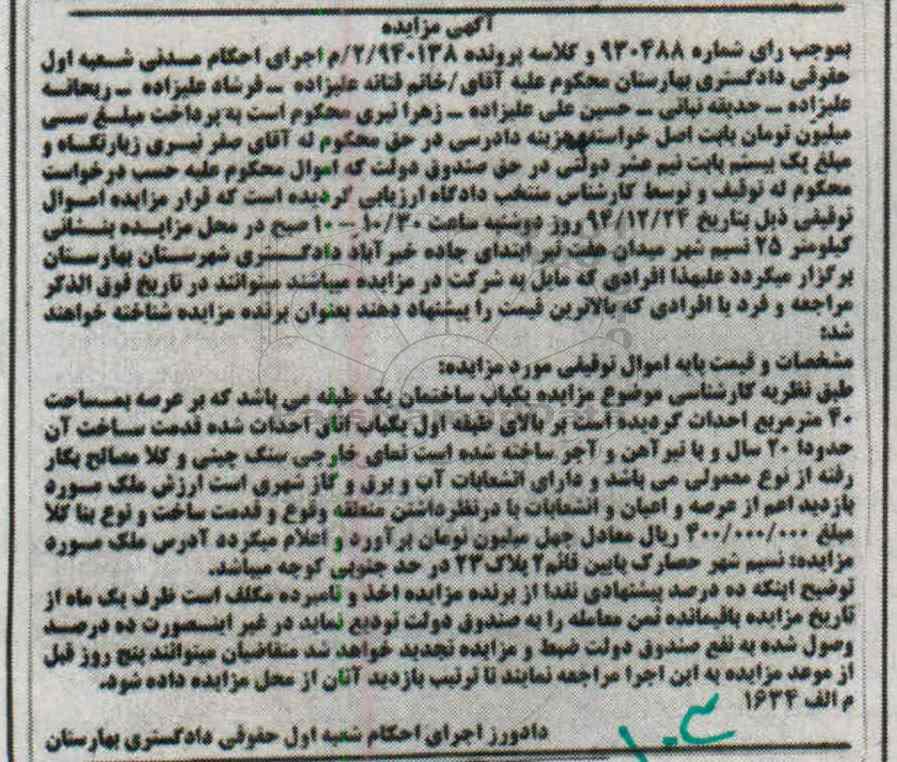 آگهی مزایده
بموجب رای شماره ۹۳۰۴۸۸ و کلاسه پرونده ۲/۹۴۰۱۳۸/م اجرای احکام مدنی شعبه اول
حقوقی دادگستری بهارستان محکوم علیه آقای/خانم فتانه علیزاده ــ فرشاد علیزاده ــ ریحانه
علیزاده ــ حدیقه نباتی ــ حسین علی علیزاده ــ زهرا نیری محکوم است به پرداخت مبلغ سی
میلیون تومان بابت اصل خواسته هزینه دادرسی در حق محکوم له آقای صفر نیری زیارتگاه و
مبلغ یک بیستم بابت نیم عشر دولتی در حق صندوق دولت که اموال محکوم علیه حسب درخواست
محکوم له توقیف و توسط کارشناس منتخب دادگاه ارزیابی گردیده است که قرار مزایده اموال
توقیفی ذیل بتاریخ ۹۴/۱۲/۲۴ روز دوشنبه ساعت ۱۰/۳۰ ــ ۱۰ صبح در محل مزایده بنشانی
کیلومتر ۲۵ نسیم شهر میدان هفت تیر ابتدای جاده خیرآباد دادگستری شهرستان بهارستان
برگزار میگردد علیهذا افرادی که مایل به شرکت در مزایده میباشند میتوانند در تاریخ فوق الذکر
مراجعه و فرد یا افرادی که بالاترین قیمت را پیشنهاد دهند بعنوان برنده مزایده شناخته خواهند
شد:
مشخصات و قیمت پایه اموال توقیفی مورد مزایده:
طبق نظریه کارشناسی موضوع مزایده یکباب ساختمان یک طبقه می باشد که بر عرصه بمساحت
۴۰ مترمربع احداث گردیده است بر بالای طبقه اول یکباب اتاق احداث شده قدمت ساخت آن
حدودا ۲۰ سال و با تیرآهن و آجر ساخته شده است نمای خارجی سنگ چینی و کلا مصالح بکار
رفته از نوع معمولی می باشد و دارای انشعابات آب و برق و گاز شهری است ارزش ملک مورد
بازدید اعم از عرصه و اعیان و انشعابات با درنظرداشتن منطقه وقوع و قدمت ساخت و نوع بنا کلا
مبلغ ۴۰۰/۰۰۰/۰۰۰ ریال معادل چهل میلیون تومان برآورد و اعلام میگردد آدرس ملک مورد
مزایده: نسیم شهر حصارک پایین قائم۲ پلاک۲۳ در حد جنوبی کوچه میباشد.
توضیح اینکه ده درصد پیشنهادی نقدا از برنده مزایده اخذ و نامبرده مکلف است ظرف یک ماه از
تاریخ مزایده باقیمانده ثمن معامله را به صندوق دولت تودیع نماید در غیر اینصورت ده درصد
وصول شده به نفع صندوق دولت ضبط و مزایده تجدید خواهد شد متقاضیان میتوانند پنج روز قبل
از موعد مزایده به این اجرا مراجعه نمایند تا ترتیب بازدید آنان از محل مزایده داده شود.
م الف ۱۶۳۴
دادورز اجرای احکام شعبه اول حقوقی دادگستری بهارستان